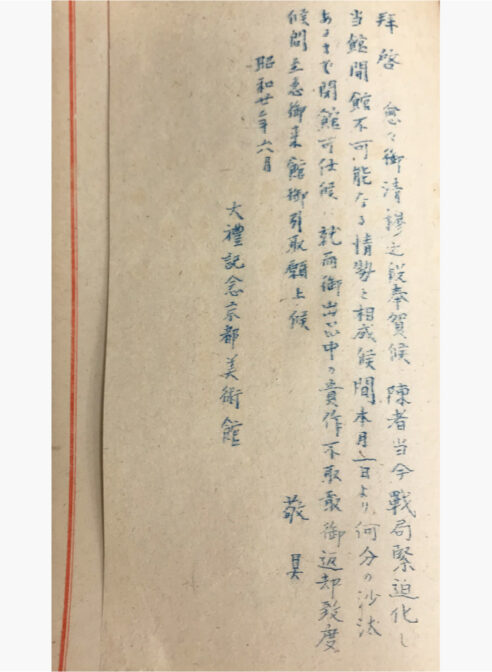 拝啓 愈々御清穆之段奉賀候 陳者当今戰局緊迫化し
当館開館不可能なる情勢と相成候間本月 日より何分の沙汰
あるまで閉館可仕候 就而御出品中の貴作不取敢御返却致度
候間至急御来館御引取願上候 敬具
昭和廿 年六月
大禮記念京都美術館